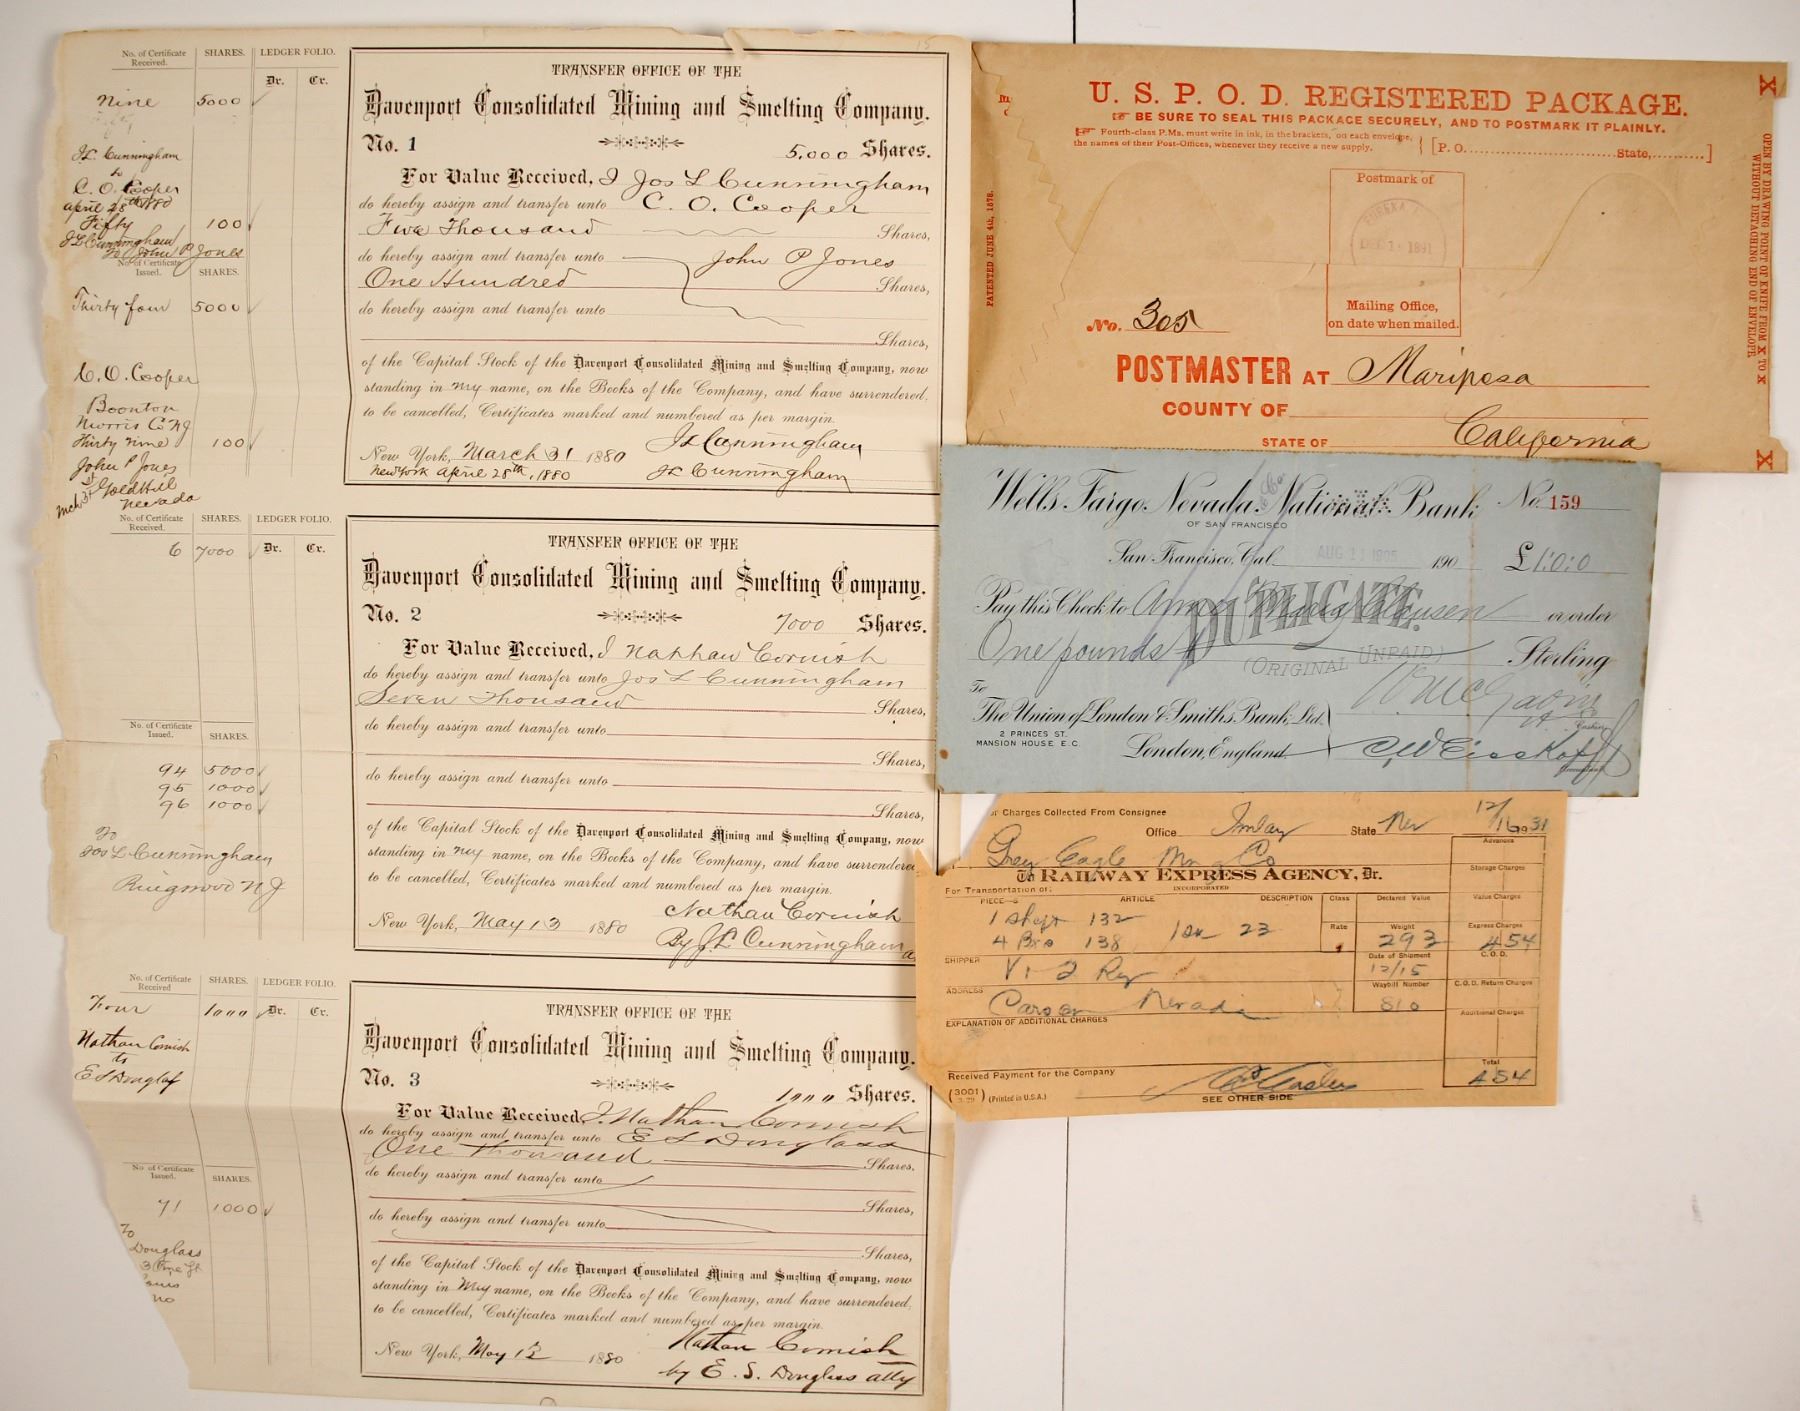 No. of Certificate Received. SHARES. LEDGER FOLIO.
Dr. Cr.
Nine 5000
J L Cunningham
to
C. O. Cooper
April 28th 1880
Fifty 100
J L Cunningham
to John P Jones
No. of Certificate Issued. SHARES.
Thirty four 5000
C. O. Cooper
Boonton
Morris Co NJ
Thirty nine 100
John P Jones
Gold Hill
Mch 31st Nevada
TRANSFER OFFICE OF THE
Davenport Consolidated Mining and Smelting Company.
No. 1
5,000 Shares.
For Value Received, I Jos L Cunningham
do hereby assign and transfer unto C. O. Cooper
Five Thousand Shares,
do hereby assign and transfer unto John P Jones
One Hundred Shares,
do hereby assign and transfer unto
Shares,
of the Capital Stock of the Davenport Consolidated Mining and Smelting Company, now
standing in my name, on the Books of the Company, and have surrendered,
to be cancelled, Certificates marked and numbered as per margin.
New York, March 31 1880 J L Cunningham
New York April 28th, 1880 J L Cunningham
No. of Certificate Received. SHARES. LEDGER FOLIO.
6 7000 Dr. Cr.
No. of Certificate Issued. SHARES.
94 5000
95 1000
96 1000
To
Jos L Cunningham
Ringwood N J
TRANSFER OFFICE OF THE
Davenport Consolidated Mining and Smelting Company.
No. 2
7000 Shares.
For Value Received, I Nathan Cornish
do hereby assign and transfer unto Jos L Cunningham
Seven Thousand Shares,
do hereby assign and transfer unto
Shares,
do hereby assign and transfer unto
Shares,
of the Capital Stock of the Davenport Consolidated Mining and Smelting Company, now
standing in my name, on the Books of the Company, and have surrendered
to be cancelled, Certificates marked and numbered as per margin.
New York, May 13 1880 Nathan Cornish
By J. L. Cunningham
No. of Certificate Received SHARES. LEDGER FOLIO.
Four 1000 Dr. Cr.
Nathan Cornish
to
E S Douglass
No. of Certificate Issued. SHARES.
71 1000
To
Douglass
TRANSFER OFFICE OF THE
Davenport Consolidated Mining and Smelting Company.
No. 3
1000 Shares.
For Value Received, I Nathan Cornish
do hereby assign and transfer unto E S Douglass
One Thousand Shares.
do hereby assign and transfer unto
Shares,
do hereby assign and transfer unto
Shares,
of the Capital Stock of the Davenport Consolidated Mining and Smelting Company, now
standing in my name, on the Books of the Company, and have surrendered,
to be cancelled, Certificates marked and numbered as per margin.
New York, May 12 1880 Nathan Cornish
by E. S. Douglass atty
U. S. P. O. D. REGISTERED PACKAGE.
BE SURE TO SEAL THIS PACKAGE SECURELY, AND TO POSTMARK IT PLAINLY.
Fourth-class P.Ms. must write in ink, in the brackets, on each envelope,
the names of their Post-Offices, whenever they receive a new supply.
[P. O. State, ]
Postmark of
EUREKA
DEC 1 1891
Mailing Office,
on date when mailed.
PATENTED JUNE 4th, 1878.
X
OPEN BY DRAWING POINT OF KNIFE FROM X TO X
WITHOUT DETACHING END OF ENVELOPE.
X
No. 305
POSTMASTER AT Mariposa
COUNTY OF
STATE OF California
Wells Fargo Nevada National Bank No. 159
OF SAN FRANCISCO
San Francisco, Cal. AUG 11 190 £1:0:0
Pay this Check to Anna Maria Clausen or order
One pounds Sterling
DUPLICATE.
(ORIGINAL UNPAID)
To
The Union of London & Smiths Bank, Ltd.
2 PRINCES ST.
MANSION HOUSE E.C.
London, England
Cashier
For Charges Collected From Consignee
Office Imlay State Nev 12/16 1931
Grey Eagle Mng Co
To RAILWAY EXPRESS AGENCY, Dr.
INCORPORATED
For Transportation of:
PIECES ARTICLE DESCRIPTION
Class Declared Value
1 132
4 Bxs 138 23
Rate Weight 293
SHIPPER V. & T. Ry
Date of Shipment 12/15
ADDRESS Carson Nevada
Waybill Number 810
EXPLANATION OF ADDITIONAL CHARGES
Advances
Storage Charges
Value Charges
Express Charges 4 54
C. O. D.
C. O. D. Return Charges
Additional Charges
Total 4 54
Received Payment for the Company
(3001) (Printed in U.S.A.)
SEE OTHER SIDE